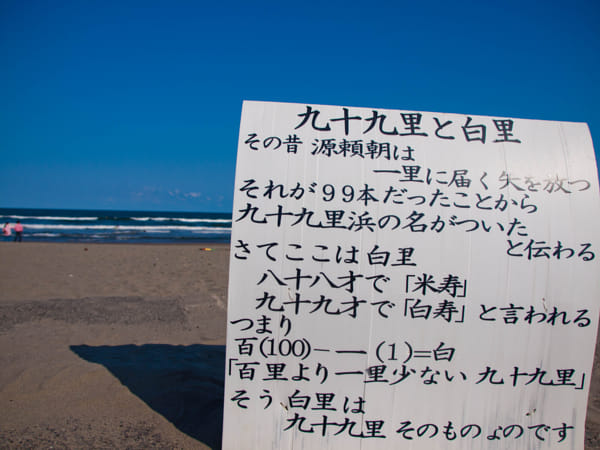 九十九里と白里
その昔 源頼朝は
一里に届く矢を放つ
それが99本だったことから
九十九里浜の名がついた
と伝わる
さてここは白里
八十八才で「米寿」
九十九才で「白寿」と言われる
つまり
百(100)−一(1)=白
「百里より一里少ない 九十九里」
そう 白里は
九十九里 そのものょのです